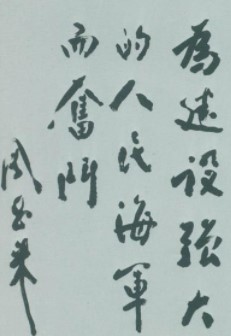 为建设强大
的人民海军
而奮鬥
周恩来